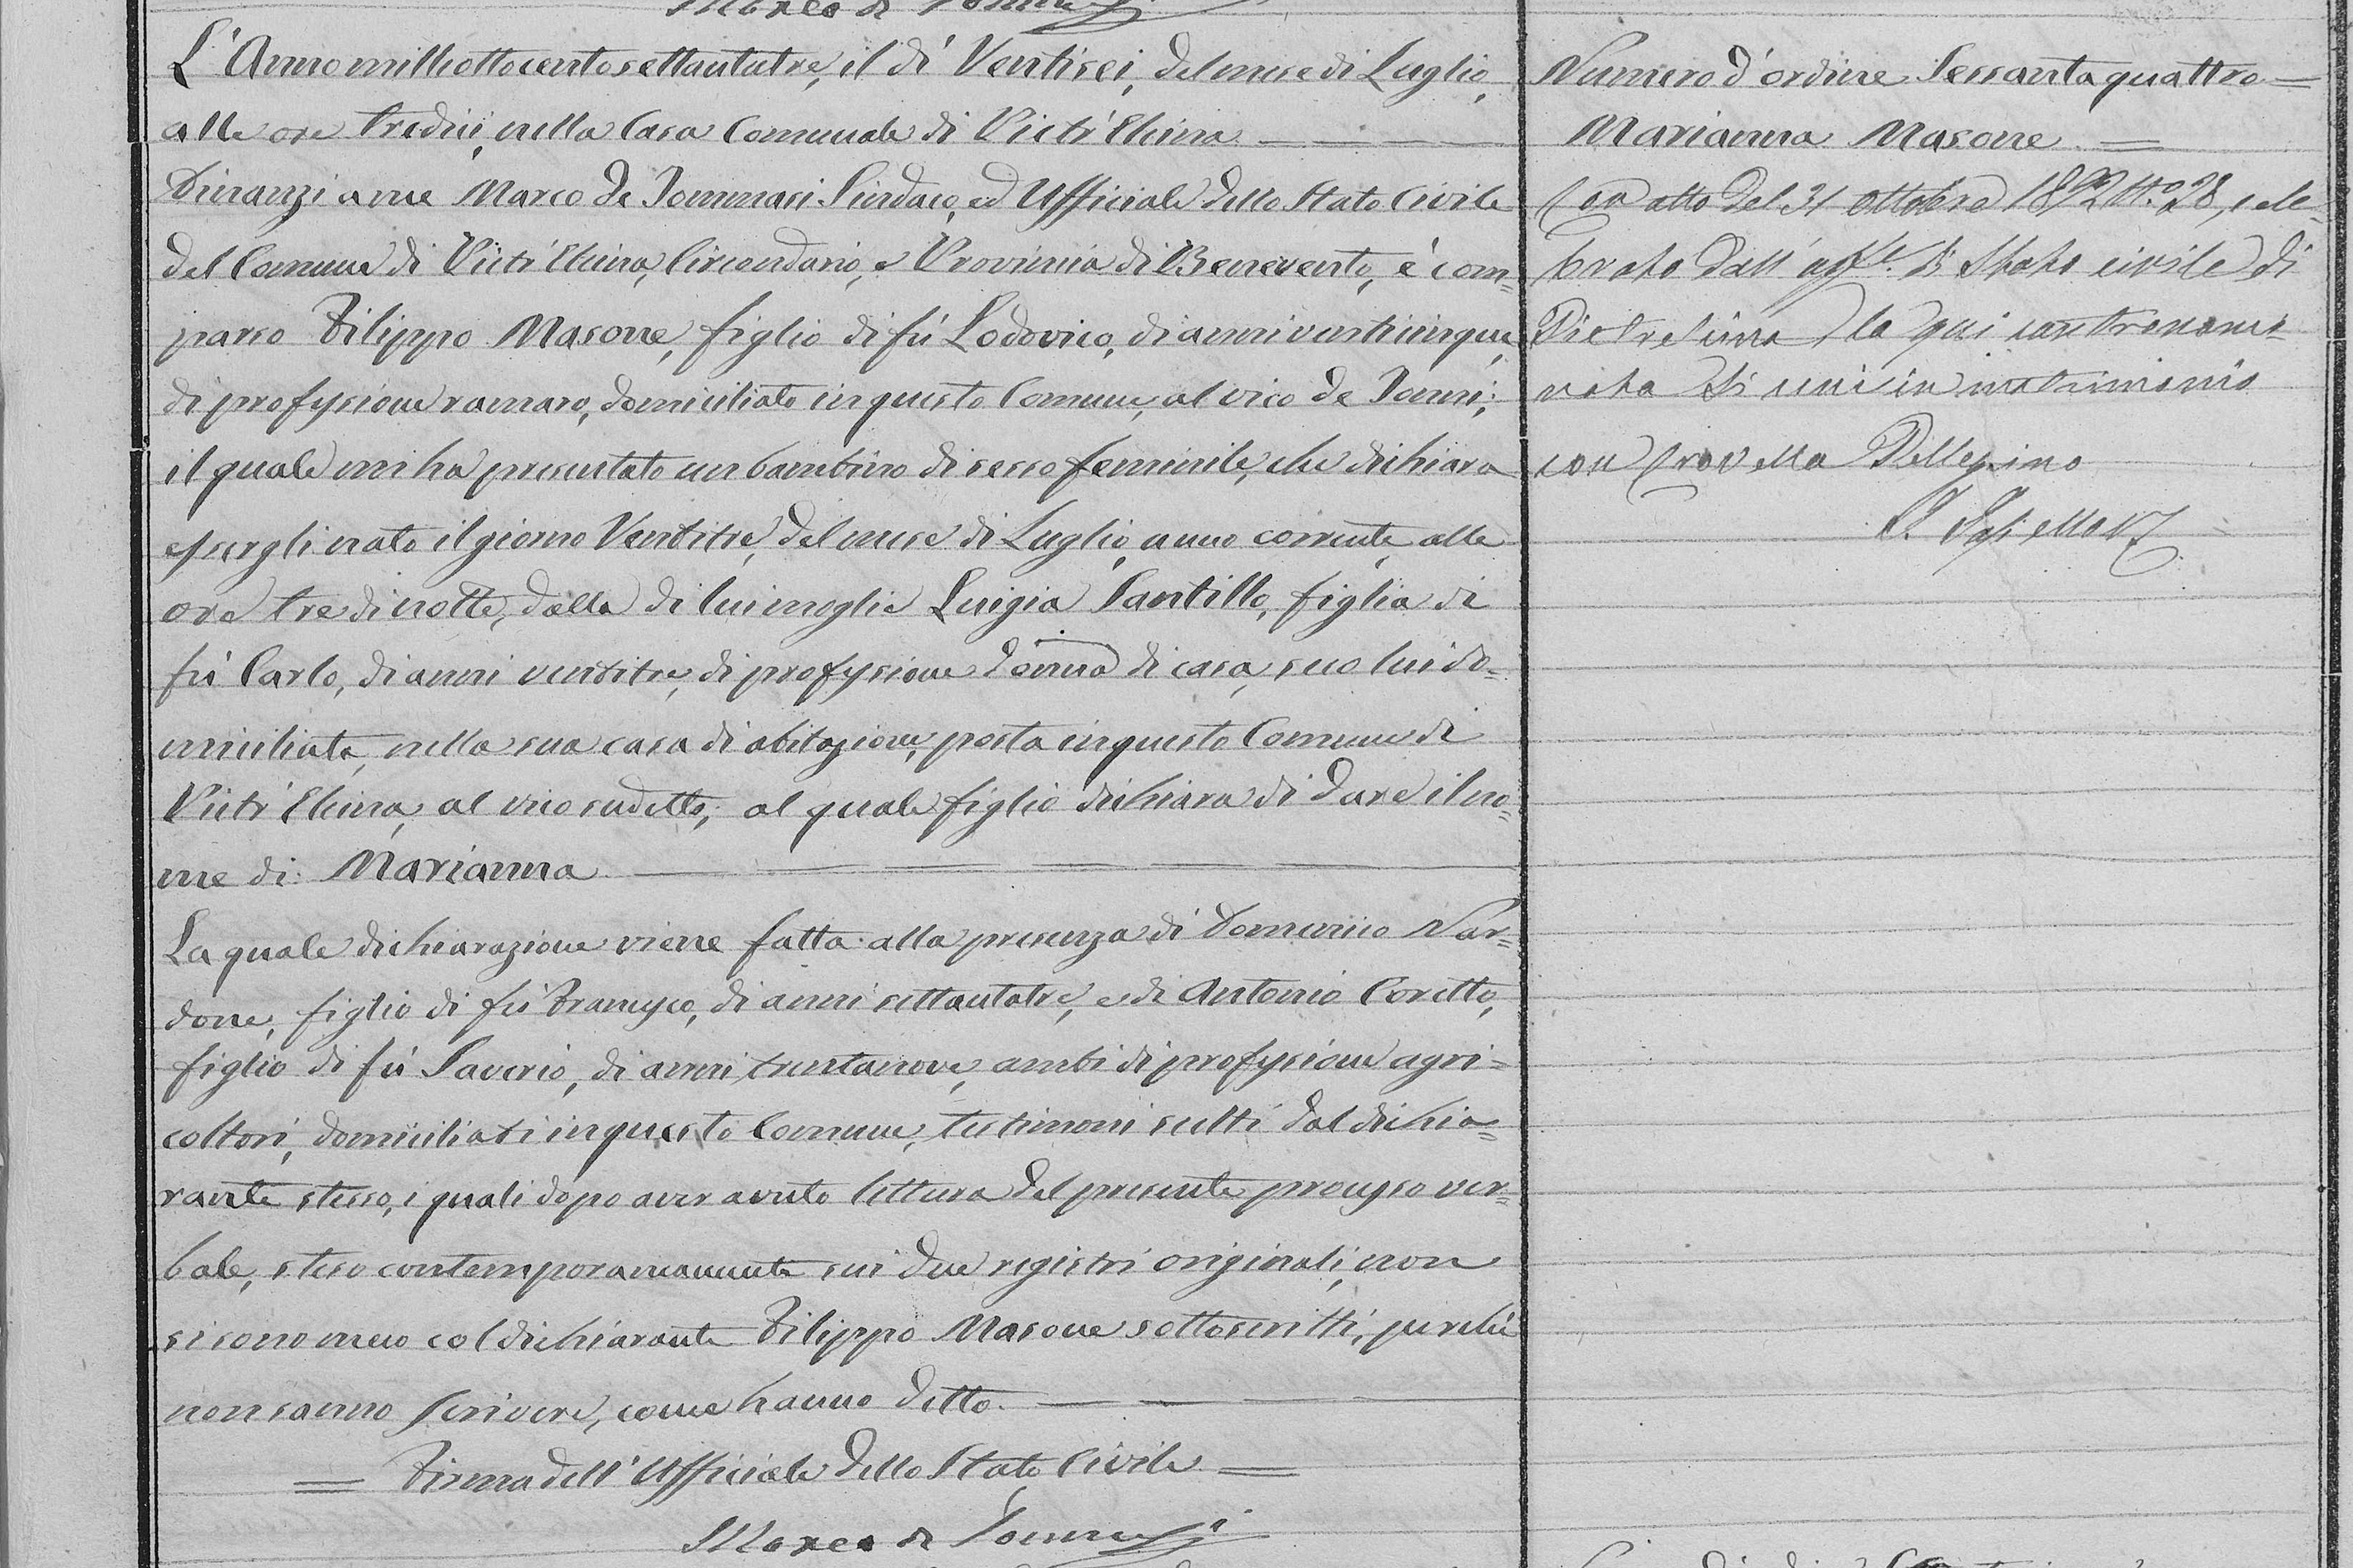 Marco de Tommasi
L'Anno milleottocentosettantatre, il di Ventisei, del mese di Luglio,
alle ore tredici, nella Casa Comunale di Pietr'Elcina
Dinanzi a me Marco de Tommasi Sindaco, ed Ufficiale dello Stato Civile
del Comune di Pietr'Elcina, Circondario, e Provincia di Benevento, è com=
parso Filippo Masone, figlio di fù Lodovico, di anni venticinque,
di professione ramaro, domiciliato in questo Comune, al vico de
il quale mi ha presentato un bambino di sesso feminile, che dichiara
essergli nato il giorno Ventitre, del mese di Luglio, anno corrente, alle
ore tre di notte, dalla di lui moglie Luigia Santillo, figlia di
fù Carlo, di anni ventitre, di professione donna di casa, seco lui do=
miciliata, nella sua casa di abitazione, posta in questo Comune di
Pietr'Elcina, al vico sudetto; al quale figlio dichiara di dare il no=
me di: Marianna
La quale dichiarazione viene fatta alla presenza di Domenico Nar=
done, figlio di fù Francesco, di anni settantatre, e di Antonio Coretto,
figlio di fù Saverio, di anni trentanove, ambi di professione agri=
coltori, domiciliati in questo Comune, testimoni scelti dal dichia=
rante stesso, i quali dopo aver avuto lettura del presente processo ver=
bale, steso contemporaneamente sui due registri originali, non
si sono meco col dichiarante Filippo Masone sottoscritti, perché
non sanno scrivere, come hanno detto.
= Firma dell'Ufficiale dello Stato Civile =
Marco de Tommasi
Numero d'ordine Sessantaquattro =
Marianna Masone =
Con atto del 31 ottobre 1892 N.° 28, cele=
brato dall'uff.le di Stato civile di
Pietrelcina, la qui contronomi=
nata si unì in matrimonio
con Crovella Pellegrino